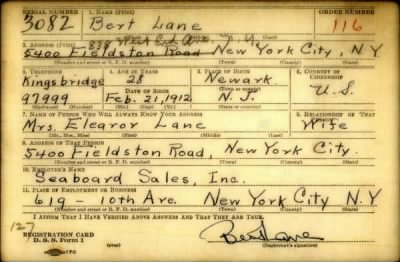 SERIAL NUMBER 1. NAME (Print) ORDER NUMBER
3082 Bert Lane 116
2. ADDRESS (Print) 838 West End Ave. N.Y.
5400 Fieldston Road New York City, N.Y
(Number and street or R. F. D. number) (Town) (County) (State)
3. TELEPHONE 4. AGE IN YEARS 5. PLACE OF BIRTH 6. COUNTRY OF CITIZENSHIP
Kingsbridge 28 Newark
DATE OF BIRTH (Town or county) U.S.
97999 Feb. 21, 1912 N.J.
(Exchange) (Number) (Mo.) (Day) (Yr.) (State or country)
7. NAME OF PERSON WHO WILL ALWAYS KNOW YOUR ADDRESS 8. RELATIONSHIP OF THAT PERSON
Mrs. Eleanor Lane Wife
(Mr., Mrs., Miss) (First) (Middle) (Last)
9. ADDRESS OF THAT PERSON
5400 Fieldston Road, New York City.
(Number and street or R. F. D. number) (Town) (County) (State)
10. EMPLOYER'S NAME
Seaboard Sales, Inc.
11. PLACE OF EMPLOYMENT OR BUSINESS
619 - 10th Ave. New York City N.Y.
(Number and street or R. F. D. number) (Town) (County) (State)
I AFFIRM THAT I HAVE VERIFIED ABOVE ANSWERS AND THAT THEY ARE TRUE.
127
REGISTRATION CARD
D. S. S. Form 1 (over) Bert Lane
(Registrant's signature)